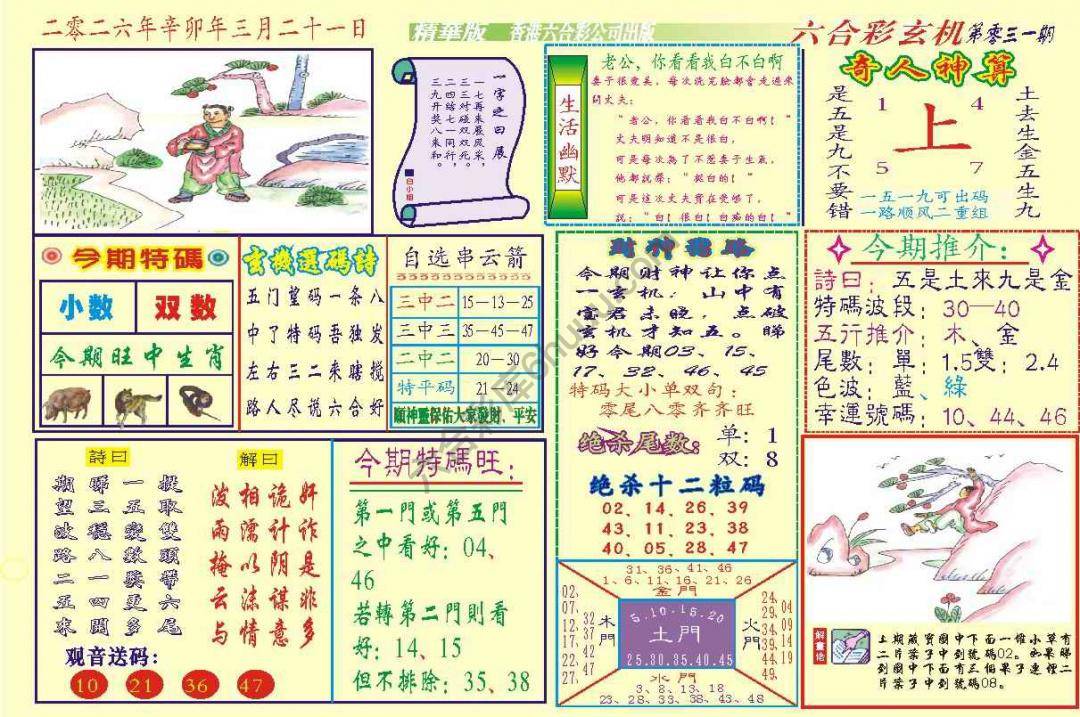 二零二六年辛卯年三月二十一日
精華版 香港六合彩公司出版
六合彩玄机 第零三一期
一字之曰 展
一七再來雙展采，
二三三对双凤
三四结碰双死，
九开奖八一同行，
白小姐
生活幽默
老公，你看看我白不白啊
妻子很愛美，每次洗完臉都會走過來
問丈夫：
"老公，你看看我白不白啊！"
丈夫明知道不是很白，
可是每次為了不惹妻子生氣，
他都說聲："挺白的！"
可是這次丈夫實在受夠了，
說："白！很白！白痴的白！"
奇人神算
是五是九不要錯
1 4
上
5 7
土去生金五生九
一五一九可出码
一路顺风二重组
今期特碼
小数 双数
今期旺中生肖
玄機選碼詩
五门望码一条八
中了特码吾独发
左右三二来瞎搅
路人尽说六合好
自选串云箭
三中二 15—13—25
三中三 35—45—47
二中二 20—30
特平码 21—24
願神靈保佑大家發財、平安
財神指路
今期财神让你点
一玄机：山中有
宝君未晓，点破
玄机才知五。睇
好今期03、15、
17、32、46、45
特码大小单双句：
零尾八零齐齐旺
绝杀尾数：
单：1
双：8
绝杀十二粒码
02、14、26、39
43、11、23、38
40、05、28、47
今期推介：
詩曰：五是土來九是金
特碼波段：30—40
五行推介：木、金
尾數：單：1.5雙：2.4
色波：藍、綠
幸運號碼：10、44、46
詩曰
期睇一提
望三五取
波穩變雙
路八數頭
二一獎帶
五四更六
來開多尾
解曰
泼相诡奸
雨濡计诈
掩以阴是
云沫谋非
与情意多
观音送码：
10 21 36 47
今期特碼旺：
第一門或第五門
之中看好：04、
46
若轉第二門則看
好：14、15
但不排除：35、38
31、36、41、46
1、6、11、16、21、26
金門
02、07、12、17、22、27、
32、37、42、47
木門
5.10.15.20
土門
25.30.35.40.45
火門
24、29、34、39、44、49
04、09、14、19
水門
3、8、13、18
23、28、33、38、43、48
解畫佬
上期藏寶圖中下面一堆小草有
二片葉子中到號碼02。如果睇
到圖中下面有三個果子連埋二
片葉子中到號碼08。